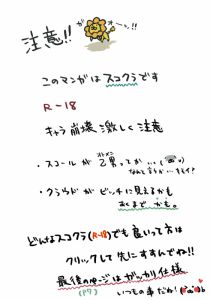 注意!!
がオーッ!!
このマンガはスコクラです
R-18
キャラ崩壊激しく注意
・スコールが乙男ってか…(´ω`)
オトメン
なんて言うか…キモイ?
・クラウドがビッチに見えるかも
あくまで かも。
どんなスコクラ(R-18)でも良いって方は
クリックして先にすすんでね!!
最後のページはガッカリ仕様
(P7)
いつもの事だね!